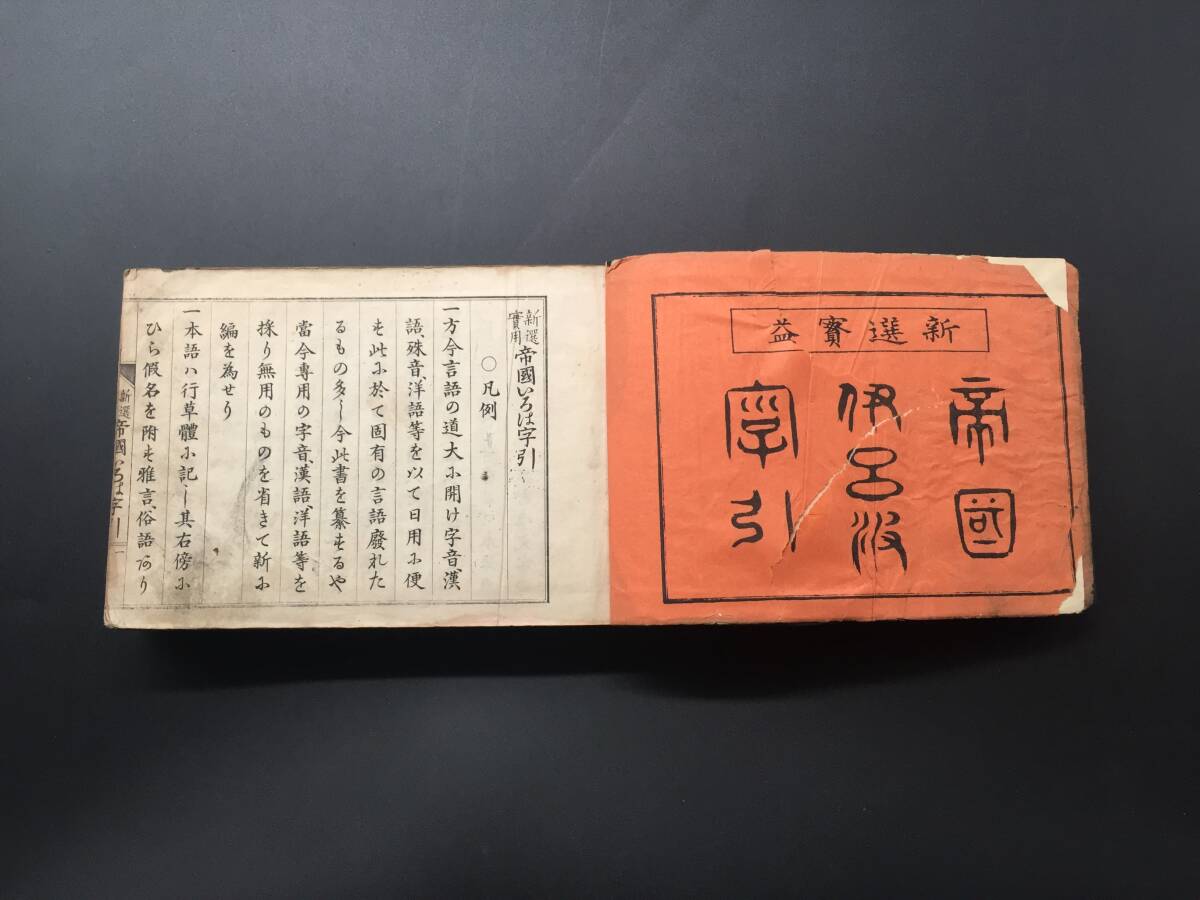 新選寳益
帝國
伊呂波
字引
新選實用帝國いろは字引
〇凡例
一方今言語の道大に開け字音、漢
語、殊音、洋語等を以て日用に便
す此に於て固有の言語廢れた
るもの多し今此書を纂するや
當今専用の字音、漢語、洋語等を
採り無用のものを省きて新に
編を為せり
一本語ハ行草體に記し其右傍に
ひら假名を附す雅言、俗語あり
新選帝國いろは字引 一